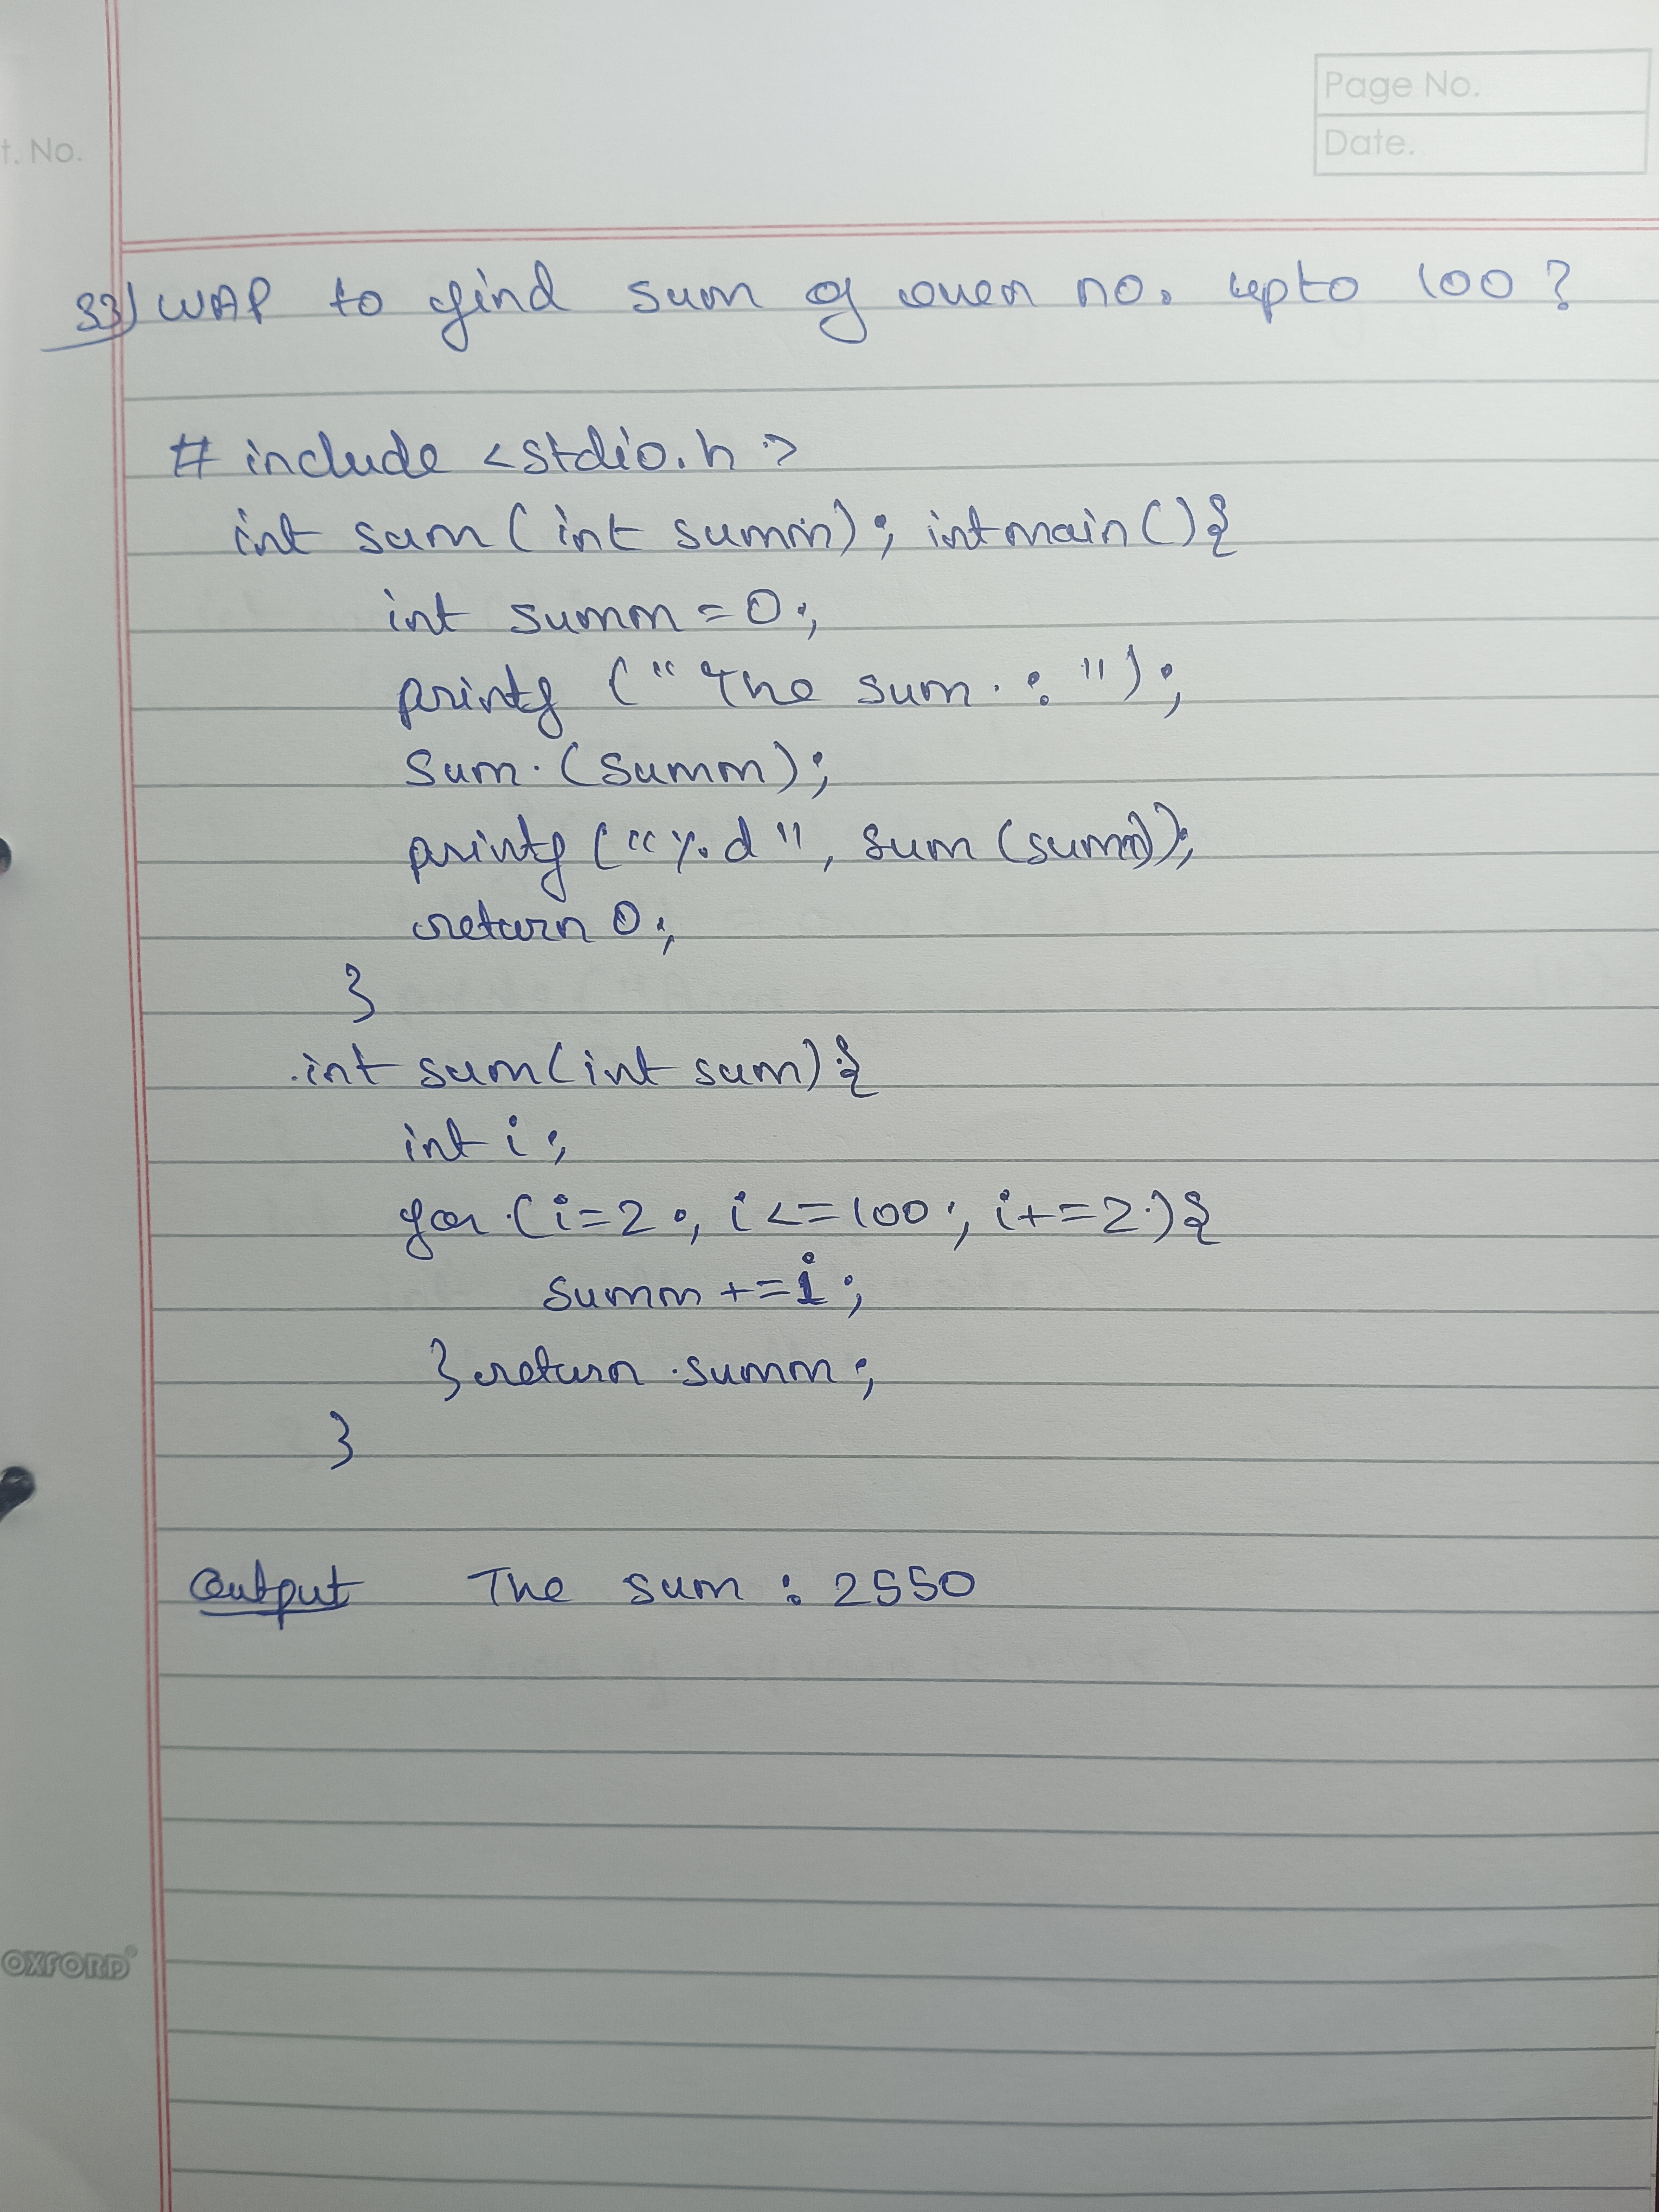 Page No.
Date.
t. No.
33) WAP to find sum of even no. upto 100?
# include <stdio.h>
int sum (int summ); int main () {
int summ = 0;
printf ("The sum : ");
sum (summ);
printf ("%d", sum (summ));
return 0;
}
int sum (int sum) {
int i;
for (i=2; i<=100; i+=2) {
summ += i;
} return summ;
}
Output The sum : 2550
OXFORD